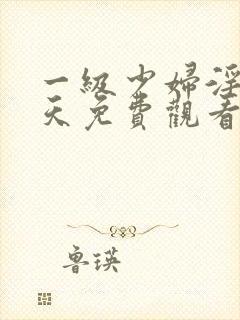 一級少婦淫
天免費觀看
魯瑛